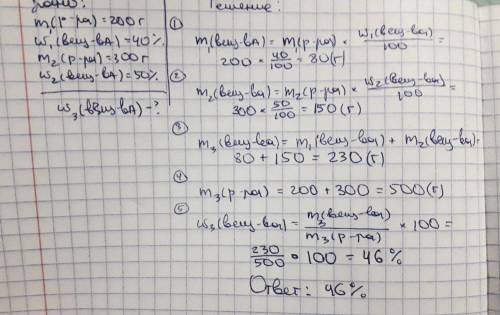 Дано:
m₁(р-ра) = 200 г
w₁(вещ-вА) = 40%
m₂(р-ра) = 300 г
w₂(вещ-вА) = 50%
w₃(вещ-вА) - ?
Решение:
①
m₁(вещ-вА) = m₁(р-ра) × w₁(вещ-ва)/100 =
200 × 40/100 = 80(г)
②
m₂(вещ-ва) = m₂(р-ра) × w₂(вещ-ва)/100 =
300 × 50/100 = 150(г)
③
m₃(вещ-ва) = m₁(вещ-ва) + m₂(вещ-ва) =
80 + 150 = 230(г)
④
m₃(р-ра) = 200 + 300 = 500(г)
⑤
w₃(вещ-ва) = m₃(вещ-ва)/m₃(р-ра) × 100 =
230/500 • 100 = 46%
Ответ: 46%